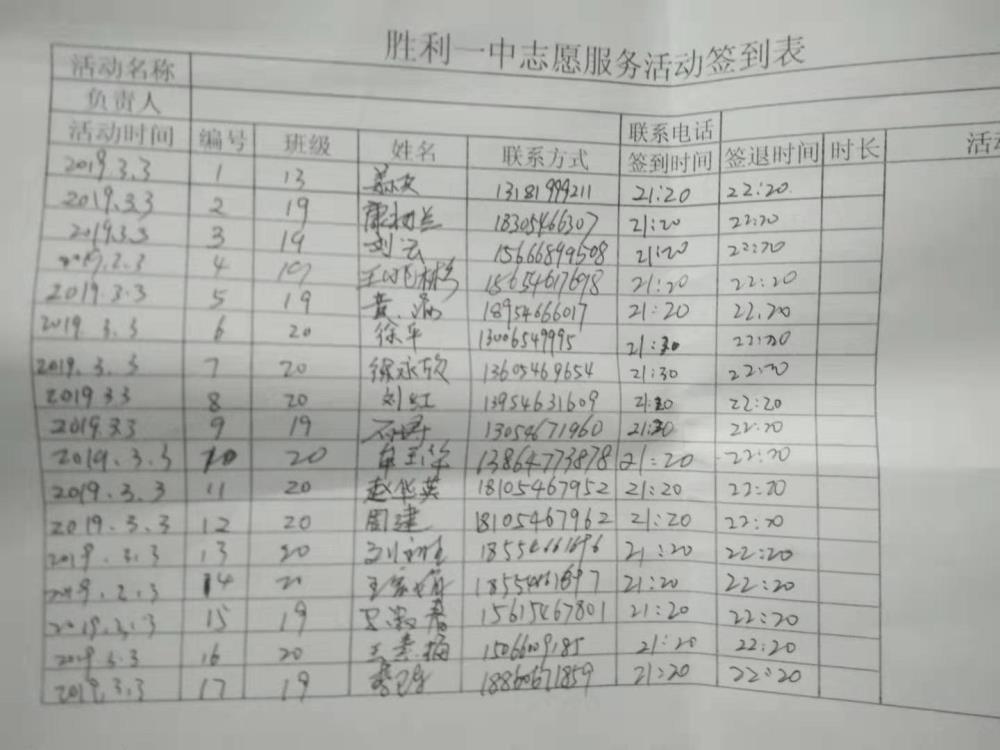 胜利一中志愿服务活动签到表
活动名称
负责人 联系电话
活动时间 编号 班级 姓名 联系方式 签到时间 签退时间 时长 活动
2019.3.3 1 13 13181999211 21:20 22:20
2019.3.3 2 19 18305466307 21:20 22:20
2019.3.3 3 19 刘云 15666899508 21:20 22:20
2019.3.3 4 19 15654617698 21:20 22:20
2019.3.3 5 19 黄 18954666017 21:20 22:20
2019.3.3 6 20 徐华 13006549995 21:30 22:20
2019.3.3 7 20 徐永欣 13605469654 21:30 22:20
2019.3.3 8 20 刘红 13954631609 21:20 22:20
2019.3.3 9 19 13054671960 22:20
2019.3.3 10 20 13864773878 21:20 22:20
2019.3.3 11 20 赵华英 18105467952 21:20 22:20
2019.3.3 12 20 周建 18105467962 21:20 22:20
2019.3.3 13 20 18554661696 21:20 22:20
14 21:20 22:20
2019.3.3 15 19 15615467801 21:20 22:20
2019.3.3 16 20 王素梅 15066009185 21:20 22:20
2019.3.3 17 19 18860671859 21:20 22:20